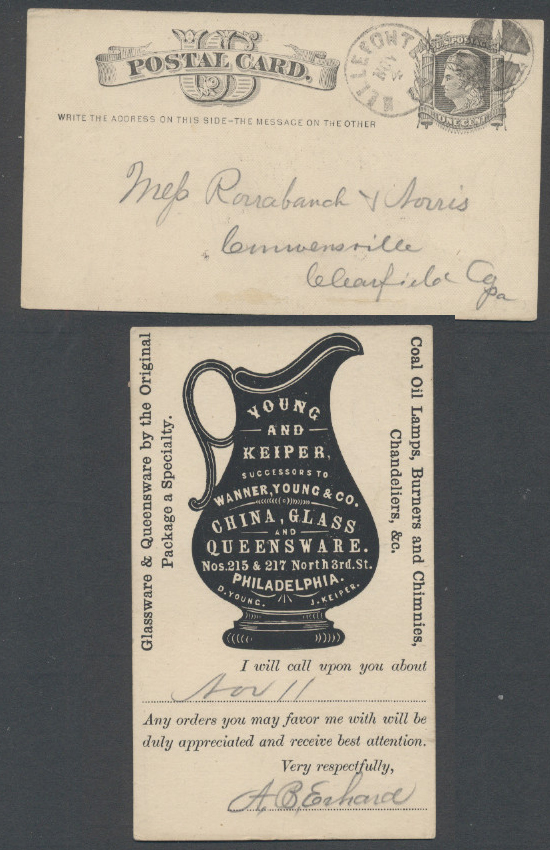 US
POSTAL CARD.
WRITE THE ADDRESS ON THIS SIDE–THE MESSAGE ON THE OTHER
BELLEFONTE
NOV
U.S. POSTAGE
ONE CENT
Mess Rorrabauch & Norris
Curwensville
Clearfield Co
Pa
Glassware & Queensware by the Original
Package a Specialty.
YOUNG
AND
KEIPER,
SUCCESSORS TO
WANNER, YOUNG & CO.
CHINA, GLASS
AND
QUEENSWARE.
Nos. 215 & 217 North 3rd. St.
PHILADELPHIA.
D. YOUNG. J. KEIPER.
Coal Oil Lamps, Burners and Chimnies,
Chandeliers, &c.
I will call upon you about
Nov 11
Any orders you may favor me with will be
duly appreciated and receive best attention.
Very respectfully,
A. B. Erhard